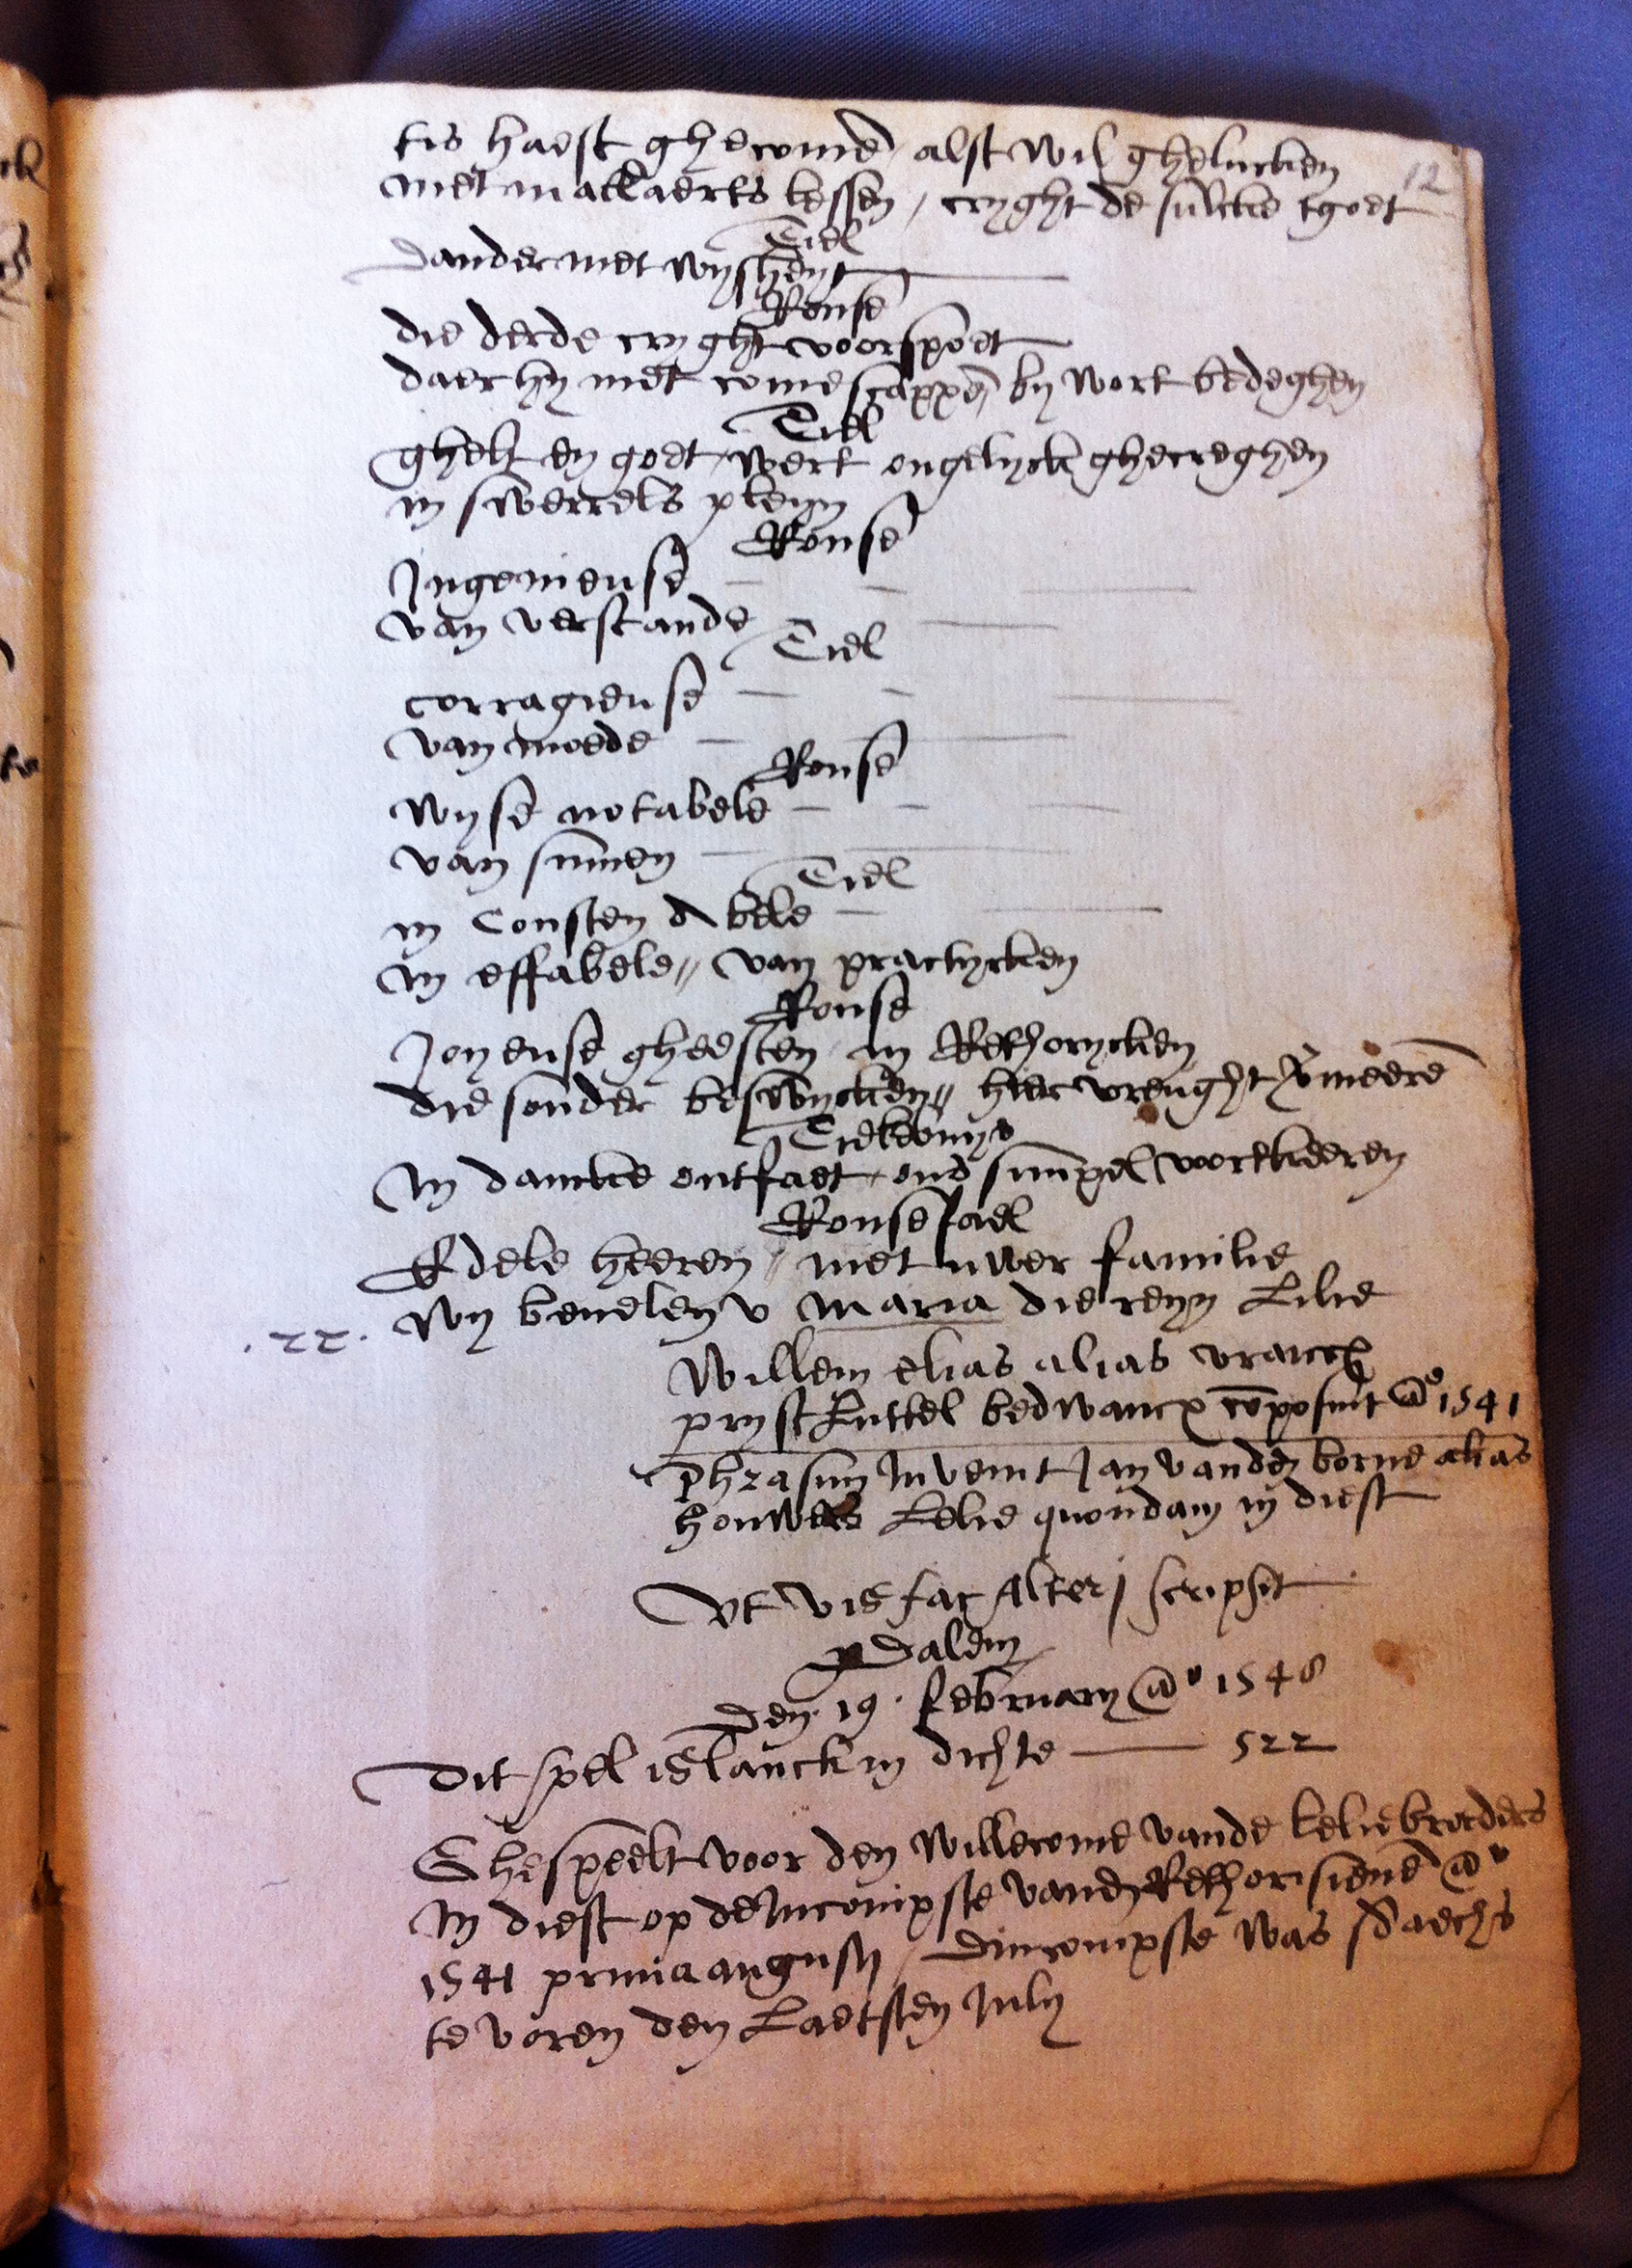 tis haest ghecome alst wil ghelucken
12
met mallaerts lessen / cryght de sulcke tgoet
Tiel
dander met wysheyt
Ronse
die derde cryght voorspoet
daer hy met comescappe by wort bedeghen
Tiel
ghelt en goet / wert ongelyck ghecreghen
in swerrels pleyn
Ronse
Ingenieuse
van verstande
Tiel
corragieuse
van moede
Ronse
wyse notabele
van sinnen
Tiel
in Consten Abele
in effabele // van practycken
Ronse
Joyeuse gheesten in Rethorycken
die sonder beswycken // hier vreught vmeere
Tielebuys
In dancke ontfaet ons simpel voortkeeren
Ronsefael
Edele heeren / met uwer familie
wy bevelen v Maria die reyn Lilie
.22.
Willem elias alias vranckx
pryst Luttel bedwancx coposuit @o 1541
Phrasim Invenit Jan vanden borne alias
houwers Lelie quondam in diest
Vt vis fac Alterj scripsit
p Dalem
Den 19 february @o 1548
Dit spel is lanck in dichte — 522
Ghespeelt voor den willecome vande leliebroeders
In diest op de Incompste vanden Rethorisiene @o
1541 prima augusty / Dincompste was sdaechs
te voren den Laetsten July